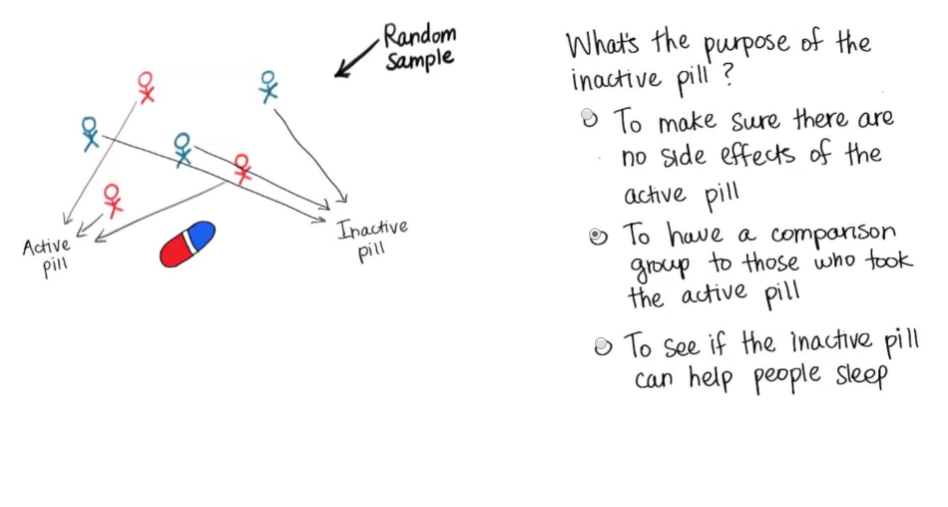 Random
Sample
Active
pill
Inactive
pill
What's the purpose of the
inactive pill?
To make sure there are
no side effects of the
active pill
To have a comparison
group to those who took
the active pill
To see if the inactive pill
can help people sleep